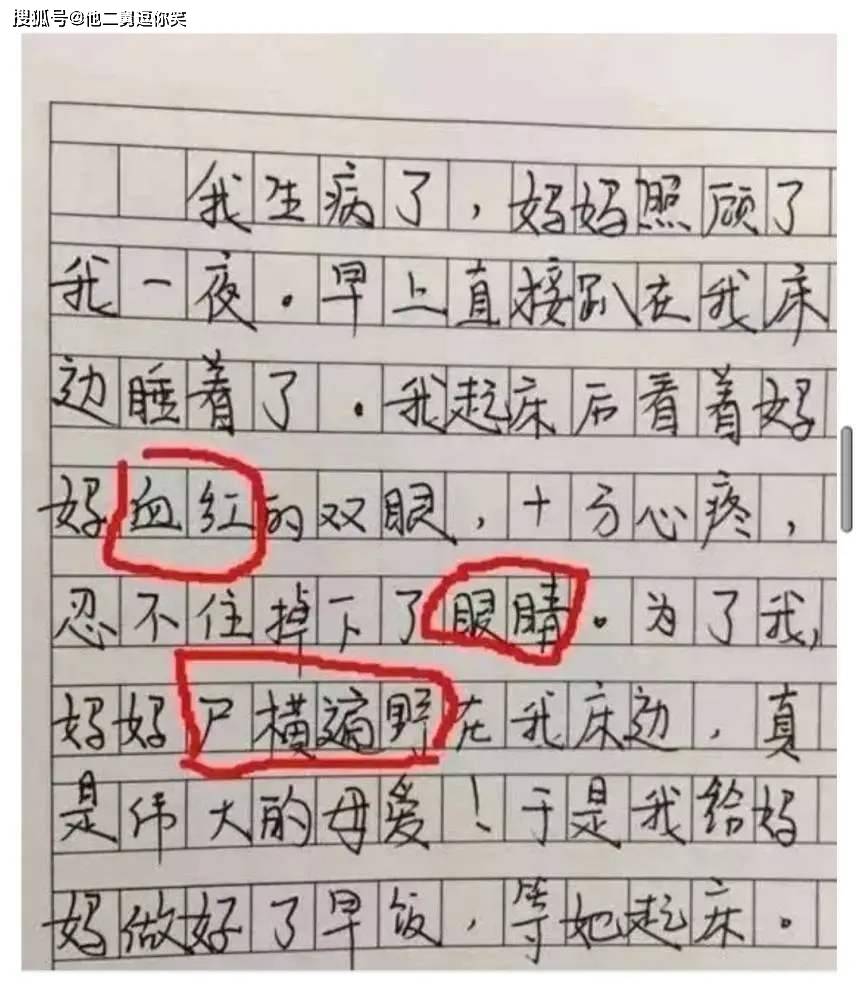 搜狐号@他二舅逗你笑
我生病了，妈妈照顾了
我一夜。早上直接趴在我床
边睡着了。我起床后看着妈
妈血红的双眼，十分心疼，
忍不住掉下了眼睛。为了我，
妈妈尸横遍野在我床边，真
是伟大的母爱！于是我给妈
妈做好了早饭，等她起床。